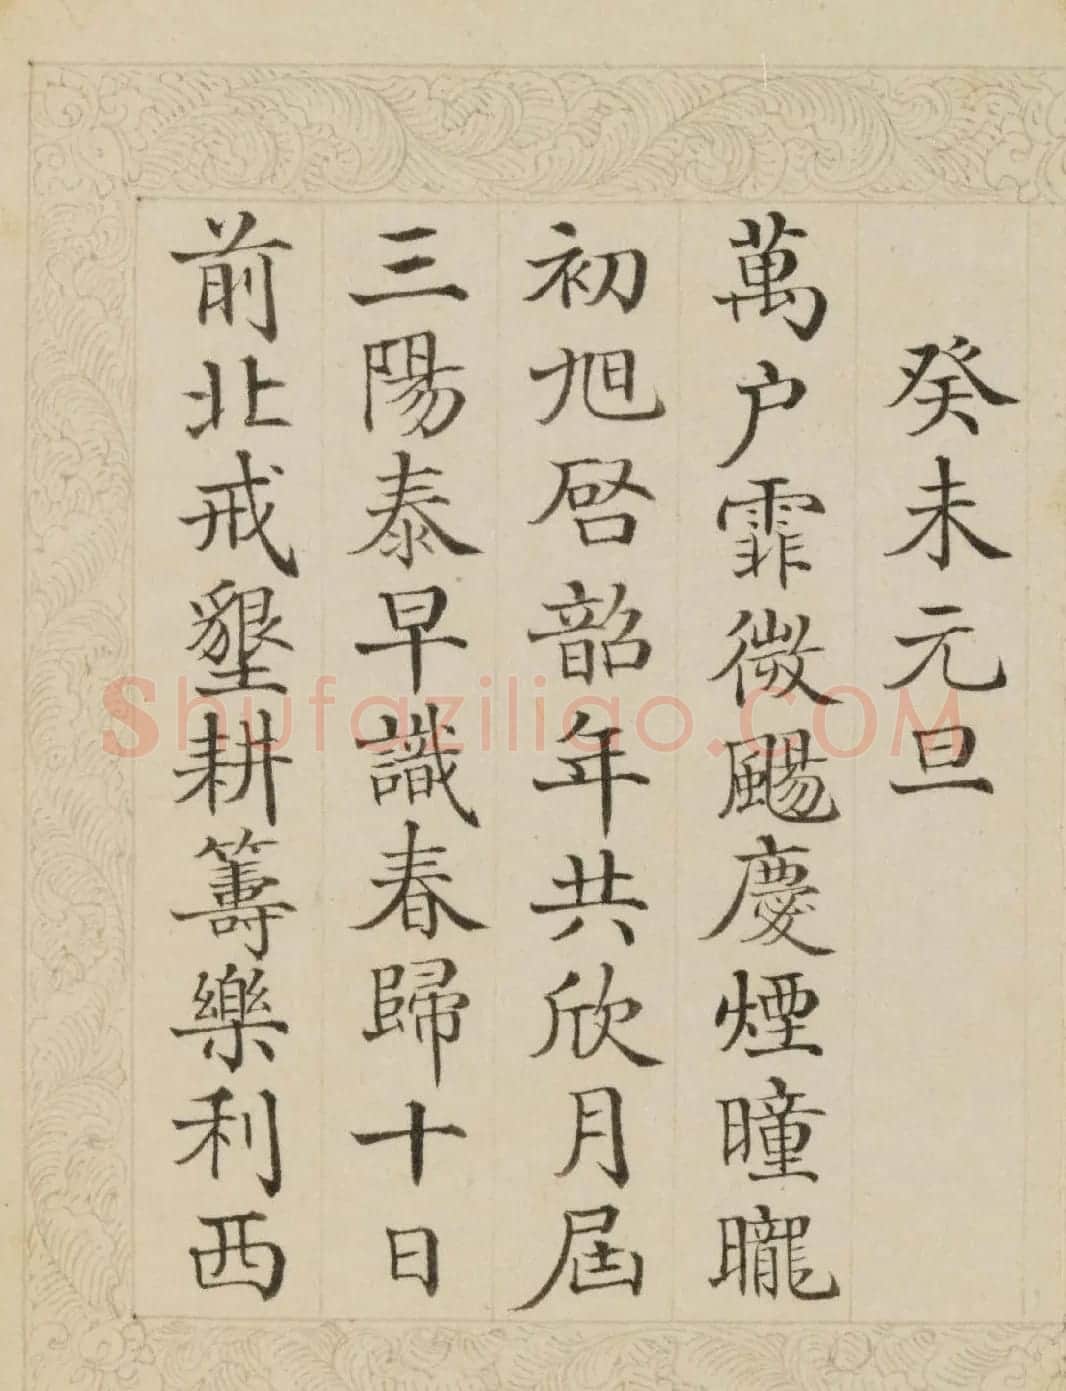 癸未元旦
萬户霏微颺慶煙曈曨
初旭啓韶年共欣月屆
三陽泰早識春歸十日
前北戒墾耕籌樂利西
Shufaziliao.COM